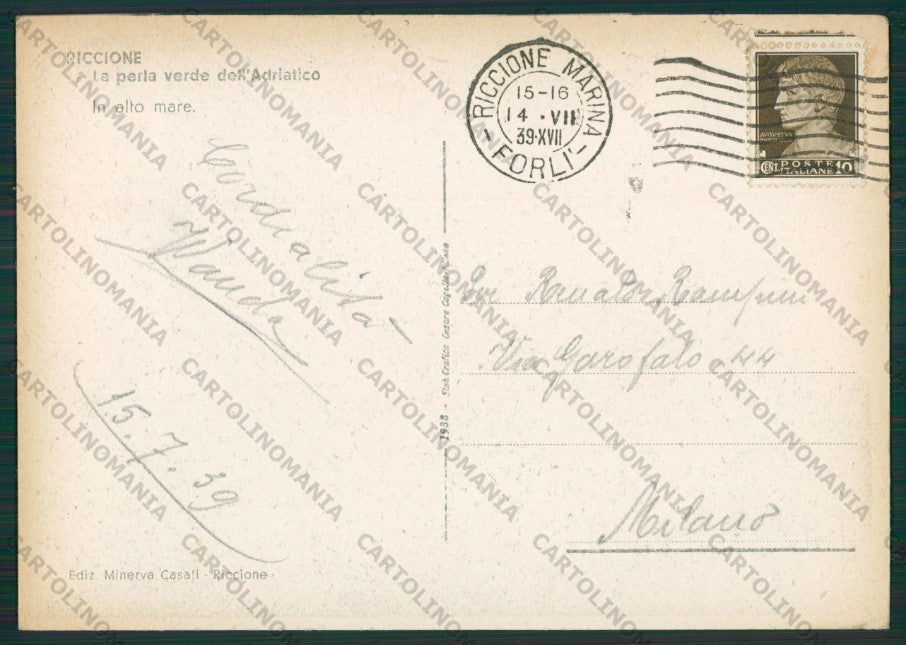 RICCIONE
La perla verde dell'Adriatico
In alto mare.
RICCIONE MARINA
15-16
14 · VII
39·XVII
- FORLI' -
POSTE
CENT. ITALIANE 10
Cordialità
Wanda
15.7.39
Renaldo
Via Garofalo 44
Milano
1938 - Stab. Grafico Cesare
Ediz. Minerva Casali - Riccione
CARTOLINOMANIA